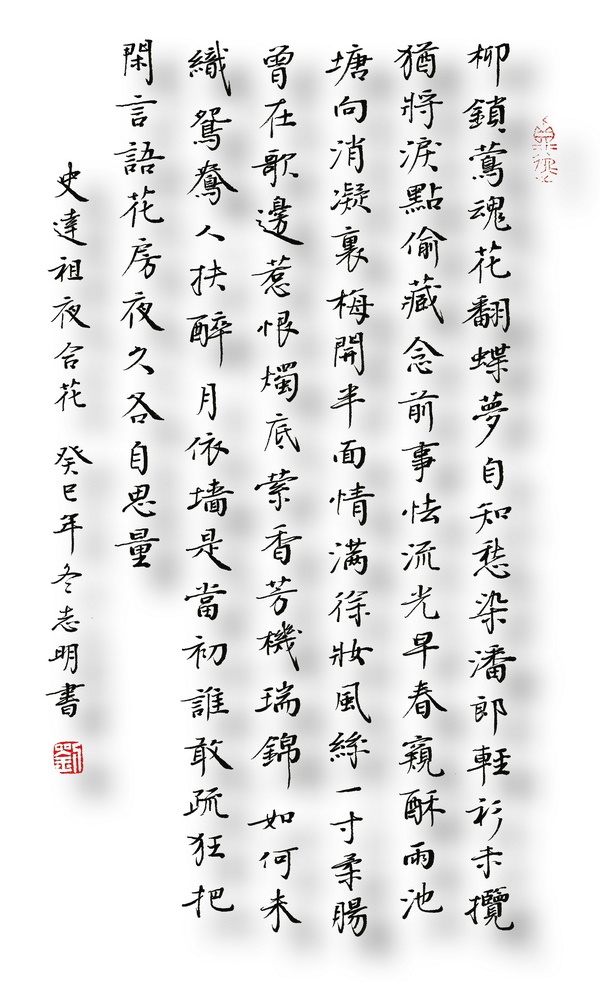 柳鎖鶯魂花翻蝶夢自知愁染潘郎輕衫未攬
猶將淚點偷藏念前事怯流光早春窺酥雨池
塘向消凝裏梅開半面情滿徐妝風絲一寸柔腸
曾在歌邊惹恨燭底縈香芳機瑞錦如何未
織鴛鴦人扶醉月依墻是當初誰敢疏狂把
閑言語花房夜久各自思量
史達祖夜合花 癸巳年冬志明書
劉